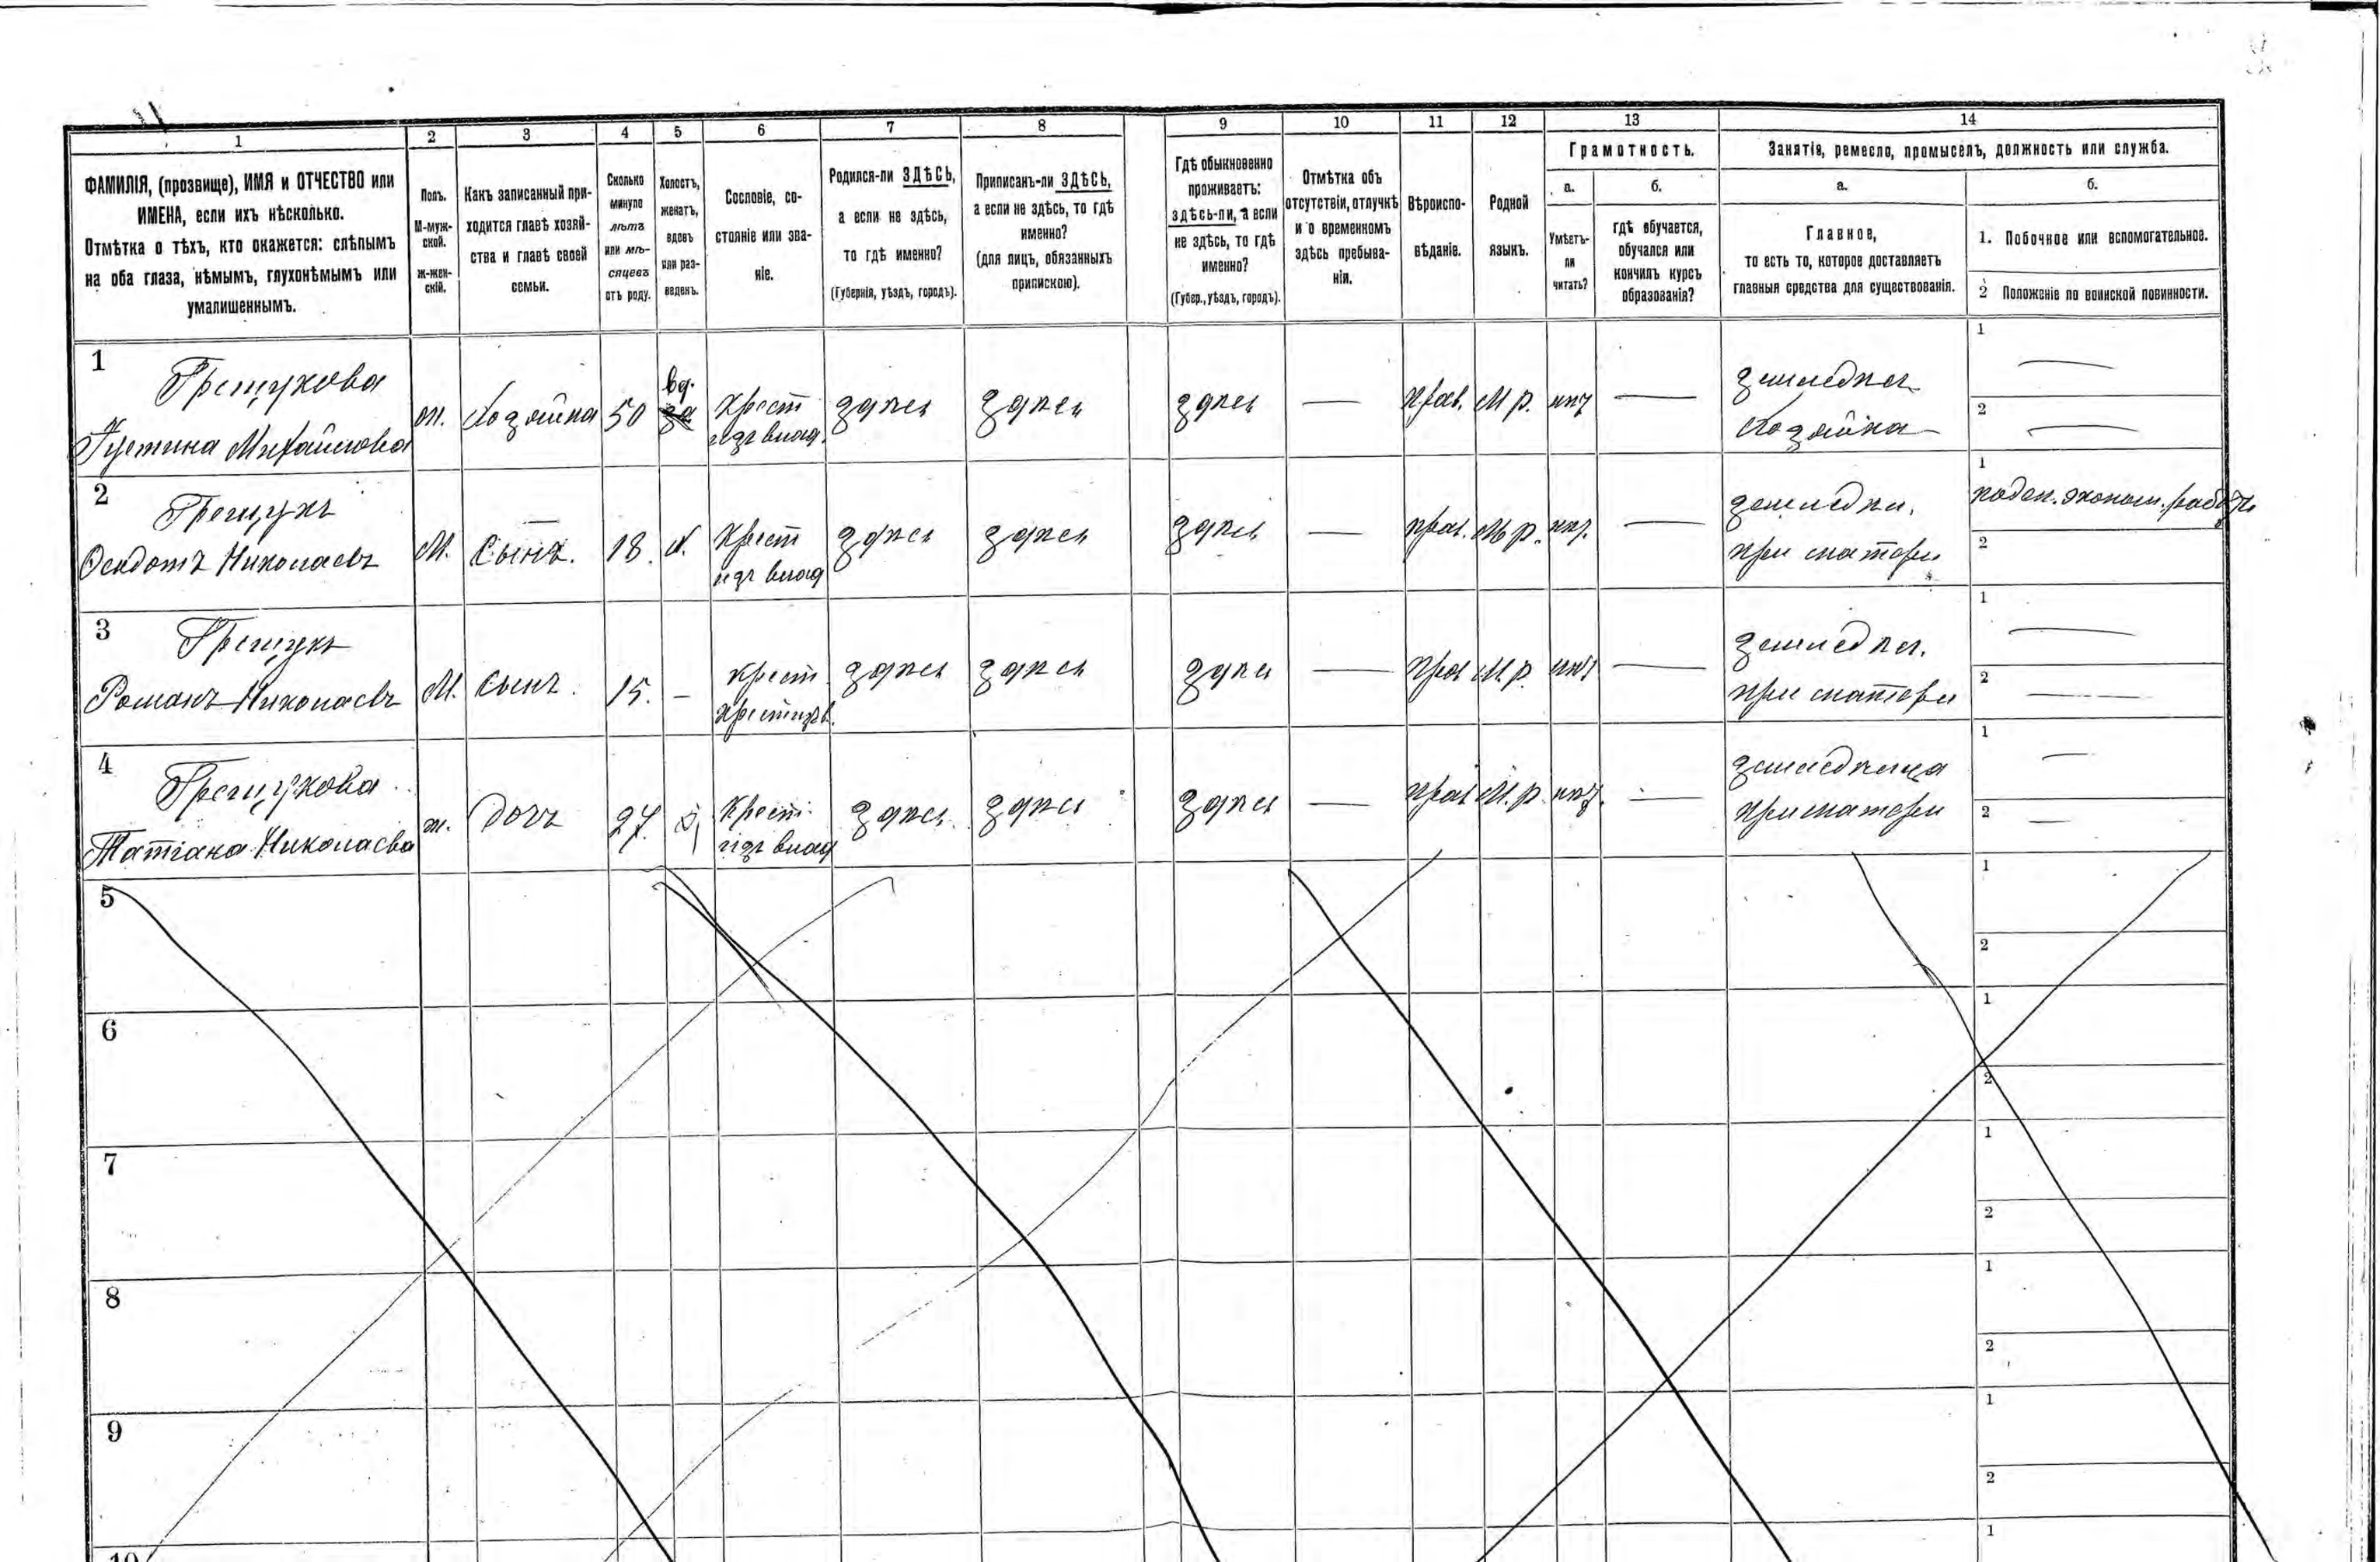 1 2 3 4 5 6 7 8 9 10 11 12 13 14
ФАМИЛІЯ, (прозвище), ИМЯ и ОТЧЕСТВО или
ИМЕНА, если ихъ нѣсколько.
Отмѣтка о тѣхъ, кто окажется: слѣпымъ
на оба глаза, нѣмымъ, глухонѣмымъ или
умалишеннымъ.
Полъ.
М-муж-
ской.
ж-жен-
скій.
Какъ записанный при-
ходится главѣ хозяй-
ства и главѣ своей
семьи.
Сколько
минуло
лѣтъ
или мѣ-
сяцевъ
отъ роду.
Холостъ,
женатъ,
вдовъ
или раз-
веденъ.
Сословіе, со-
стояніе или зва-
ніе.
Родился-ли ЗДѢСЬ,
а если не здѣсь,
то гдѣ именно?
(Губернія, уѣздъ, городъ).
Приписанъ-ли ЗДѢСЬ,
а если не здѣсь, то гдѣ
именно?
(для лицъ, обязанныхъ
припискою).
Гдѣ обыкновенно
проживаетъ:
здѣсь-ли, а если
не здѣсь, то гдѣ
именно?
(Губер., уѣздъ, городъ).
Отмѣтка объ
отсутствіи, отлучкѣ
и о временномъ
здѣсь пребыва-
ніи.
Вѣроиспо-
вѣданіе.
Родной
языкъ.
Грамотность.
а.
Умѣетъ-
ли
читать?
б.
гдѣ обучается,
обучался или
кончилъ курсъ
образованія?
Занятіе, ремесло, промыселъ, должность или служба.
а.
Главное,
то есть то, которое доставляетъ
главныя средства для существованія.
б.
1. Побочное или вспомогательное.
2 Положеніе по воинской повинности.
1
Грещукова
Устина Михайлова
ж.
Хозяйка
50
вд.
крест
изъ влад.
здѣсь
здѣсь
здѣсь
—
прав.
М р.
нѣт
—
земледѣл.
Хозяйка
1 —
2 —
2
Грещукъ
Феодотъ Николаевъ
М.
Сынъ.
18.
х.
Крест
изъ влад
здѣсь
здѣсь
здѣсь
—
прав.
М р.
нѣт.
—
земледѣл.
при матери
1 поден. эконом. работы
2
3
Грещукъ
Романъ Николаевъ
М.
Сынъ.
15.
–
крест.
здѣсь
здѣсь
здѣсь
—
прав
М. р.
нѣт
—
земледѣл.
при матери
1 —
2 —
4
Грещукова
Татіана Николаева
ж.
Дочь
27.
Крест.
изъ влад
здѣсь
здѣсь
здѣсь
—
прав
М. р.
нѣт.
—
земледѣлица
при матери
1 —
2 —
5
1
2
6
1
2
7
1
2
8
1
2
9
1
2
10
1